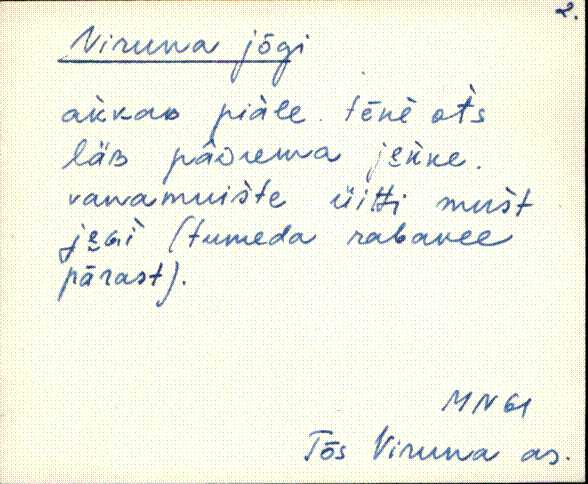 2.
Viruna jõgi
akkaʙ piäle. tēne ots
läʙ pădrema jekke.
vanamuište üitti mušt
jeɢi (tumeda rabavee
pärast).
MN 61
Tõs Viruna as.